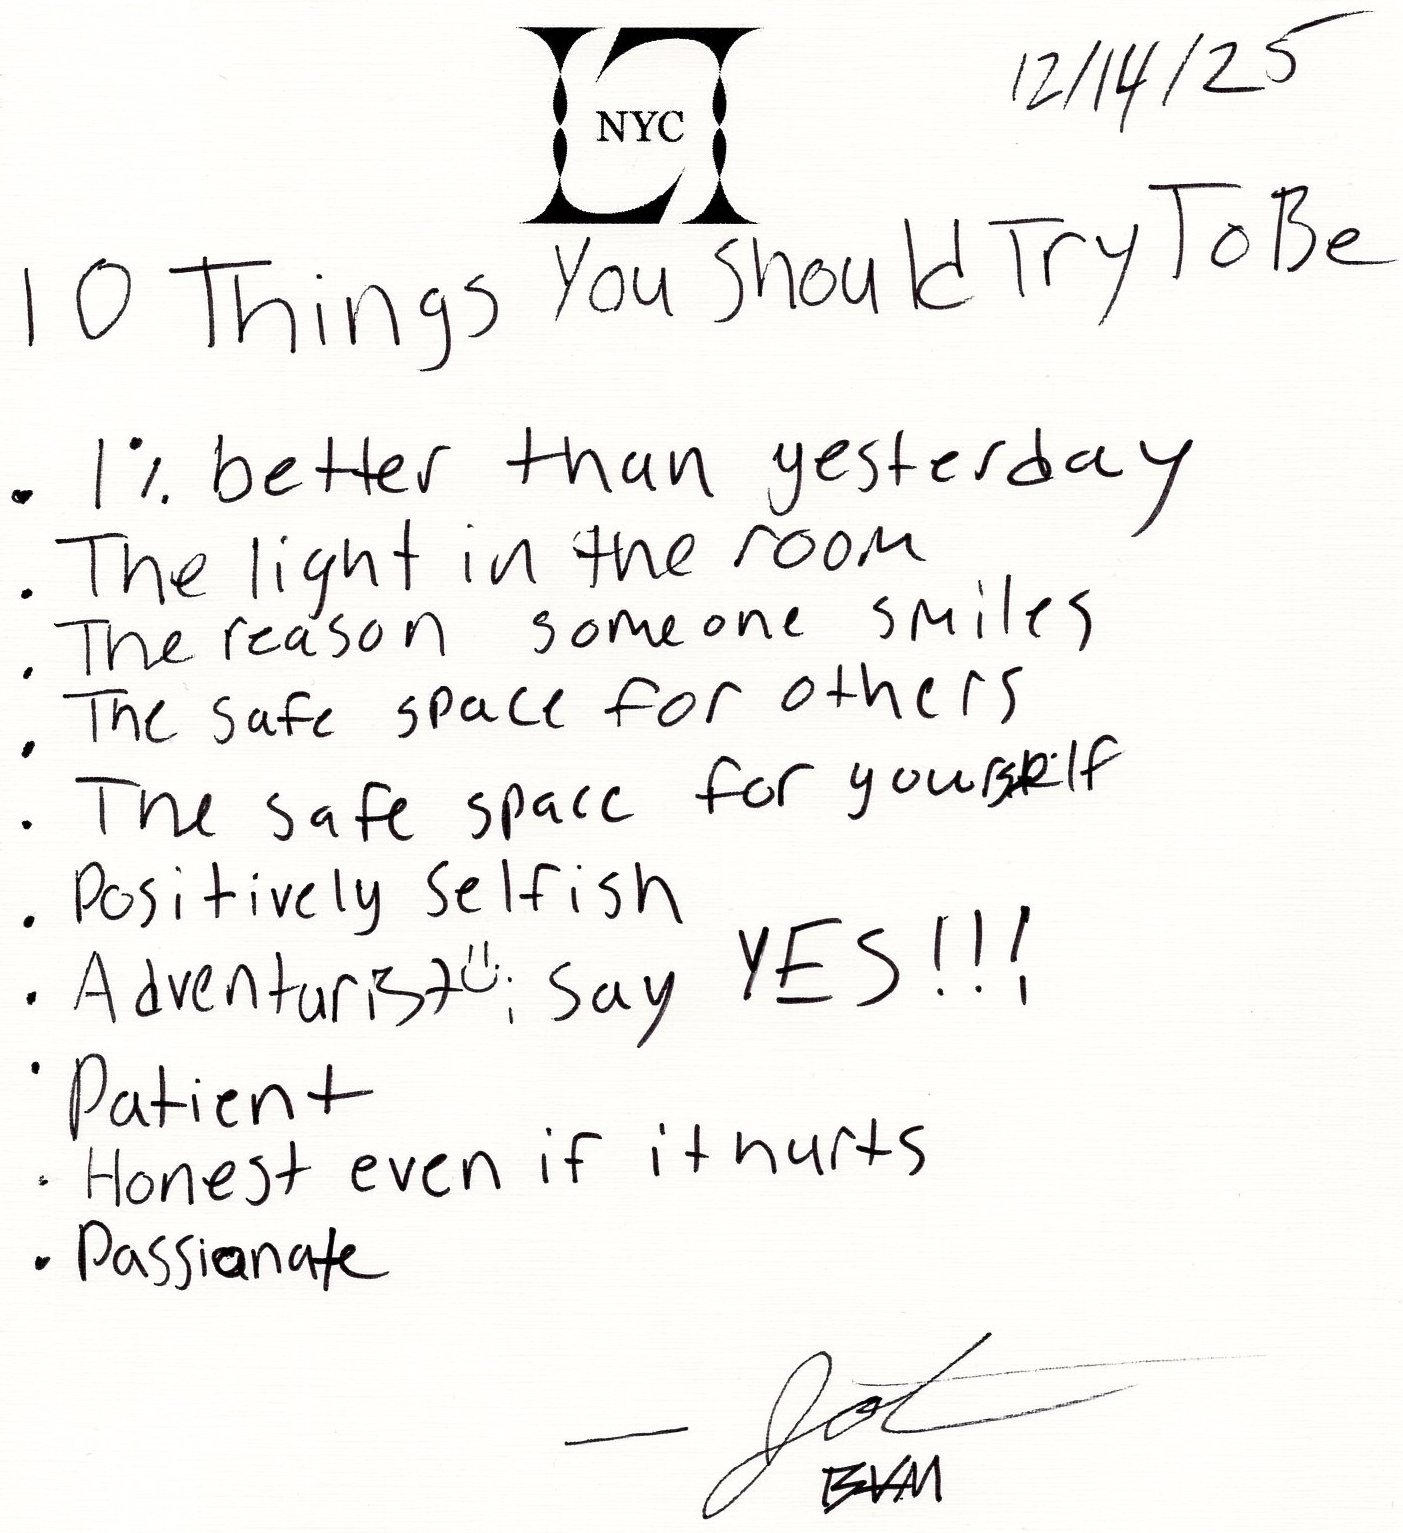 NYC
12/14/25
10 Things You Should Try To Be
• 1% better than yesterday
• The light in the room
• The reason someone smiles
• The safe space for others
• The safe space for yourself
• Positively selfish
• Adventurist :) ; say YES!!!
• Patient
• Honest even if it hurts
• Passionate
—